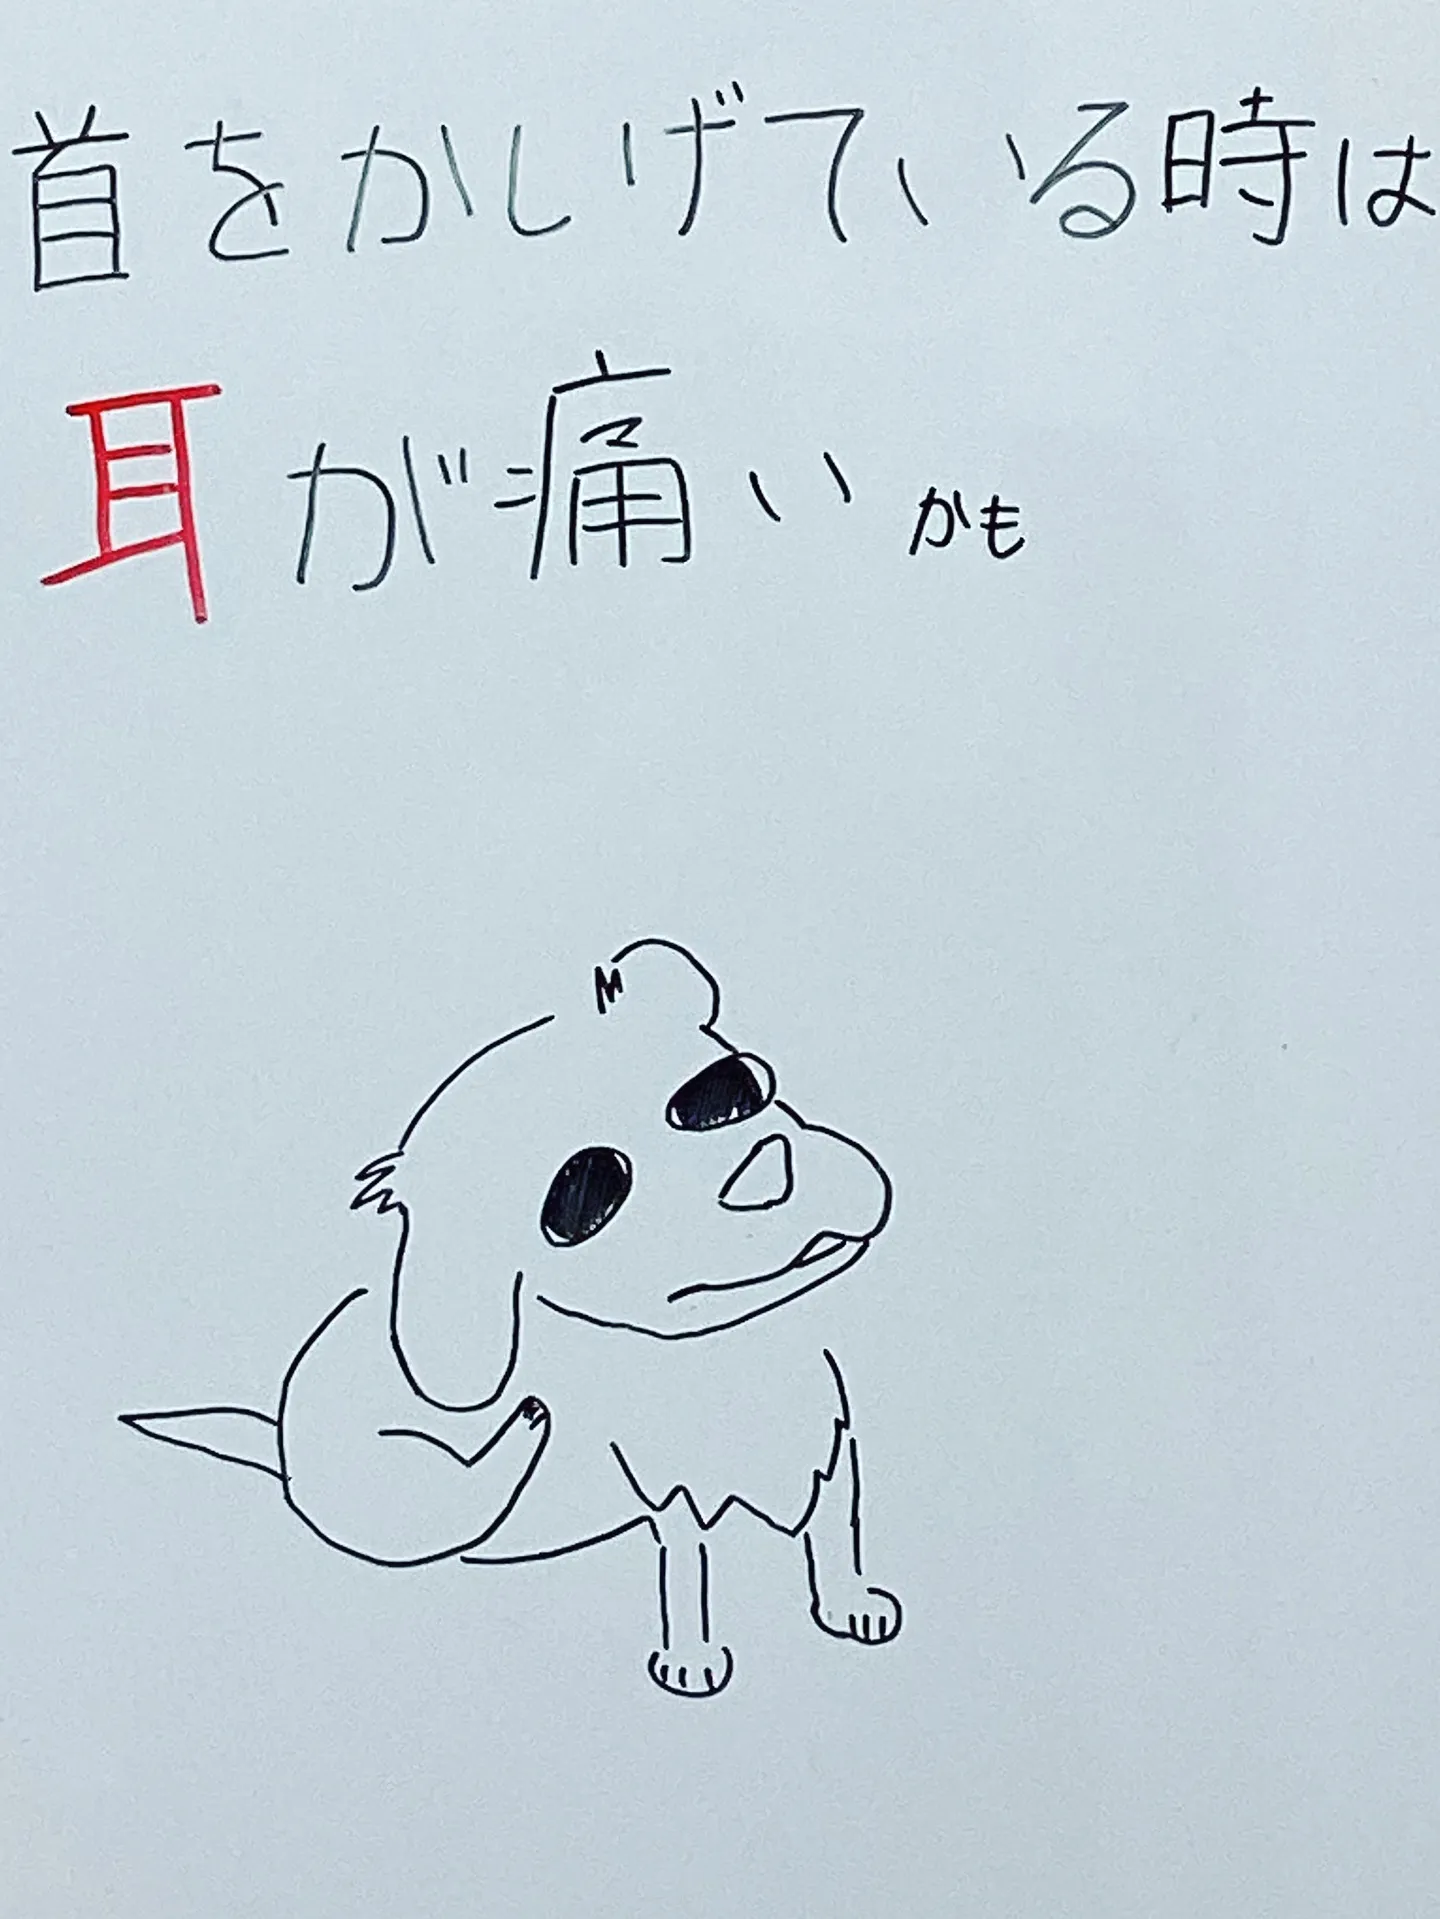 首をかしげている時は
耳が痛いかも